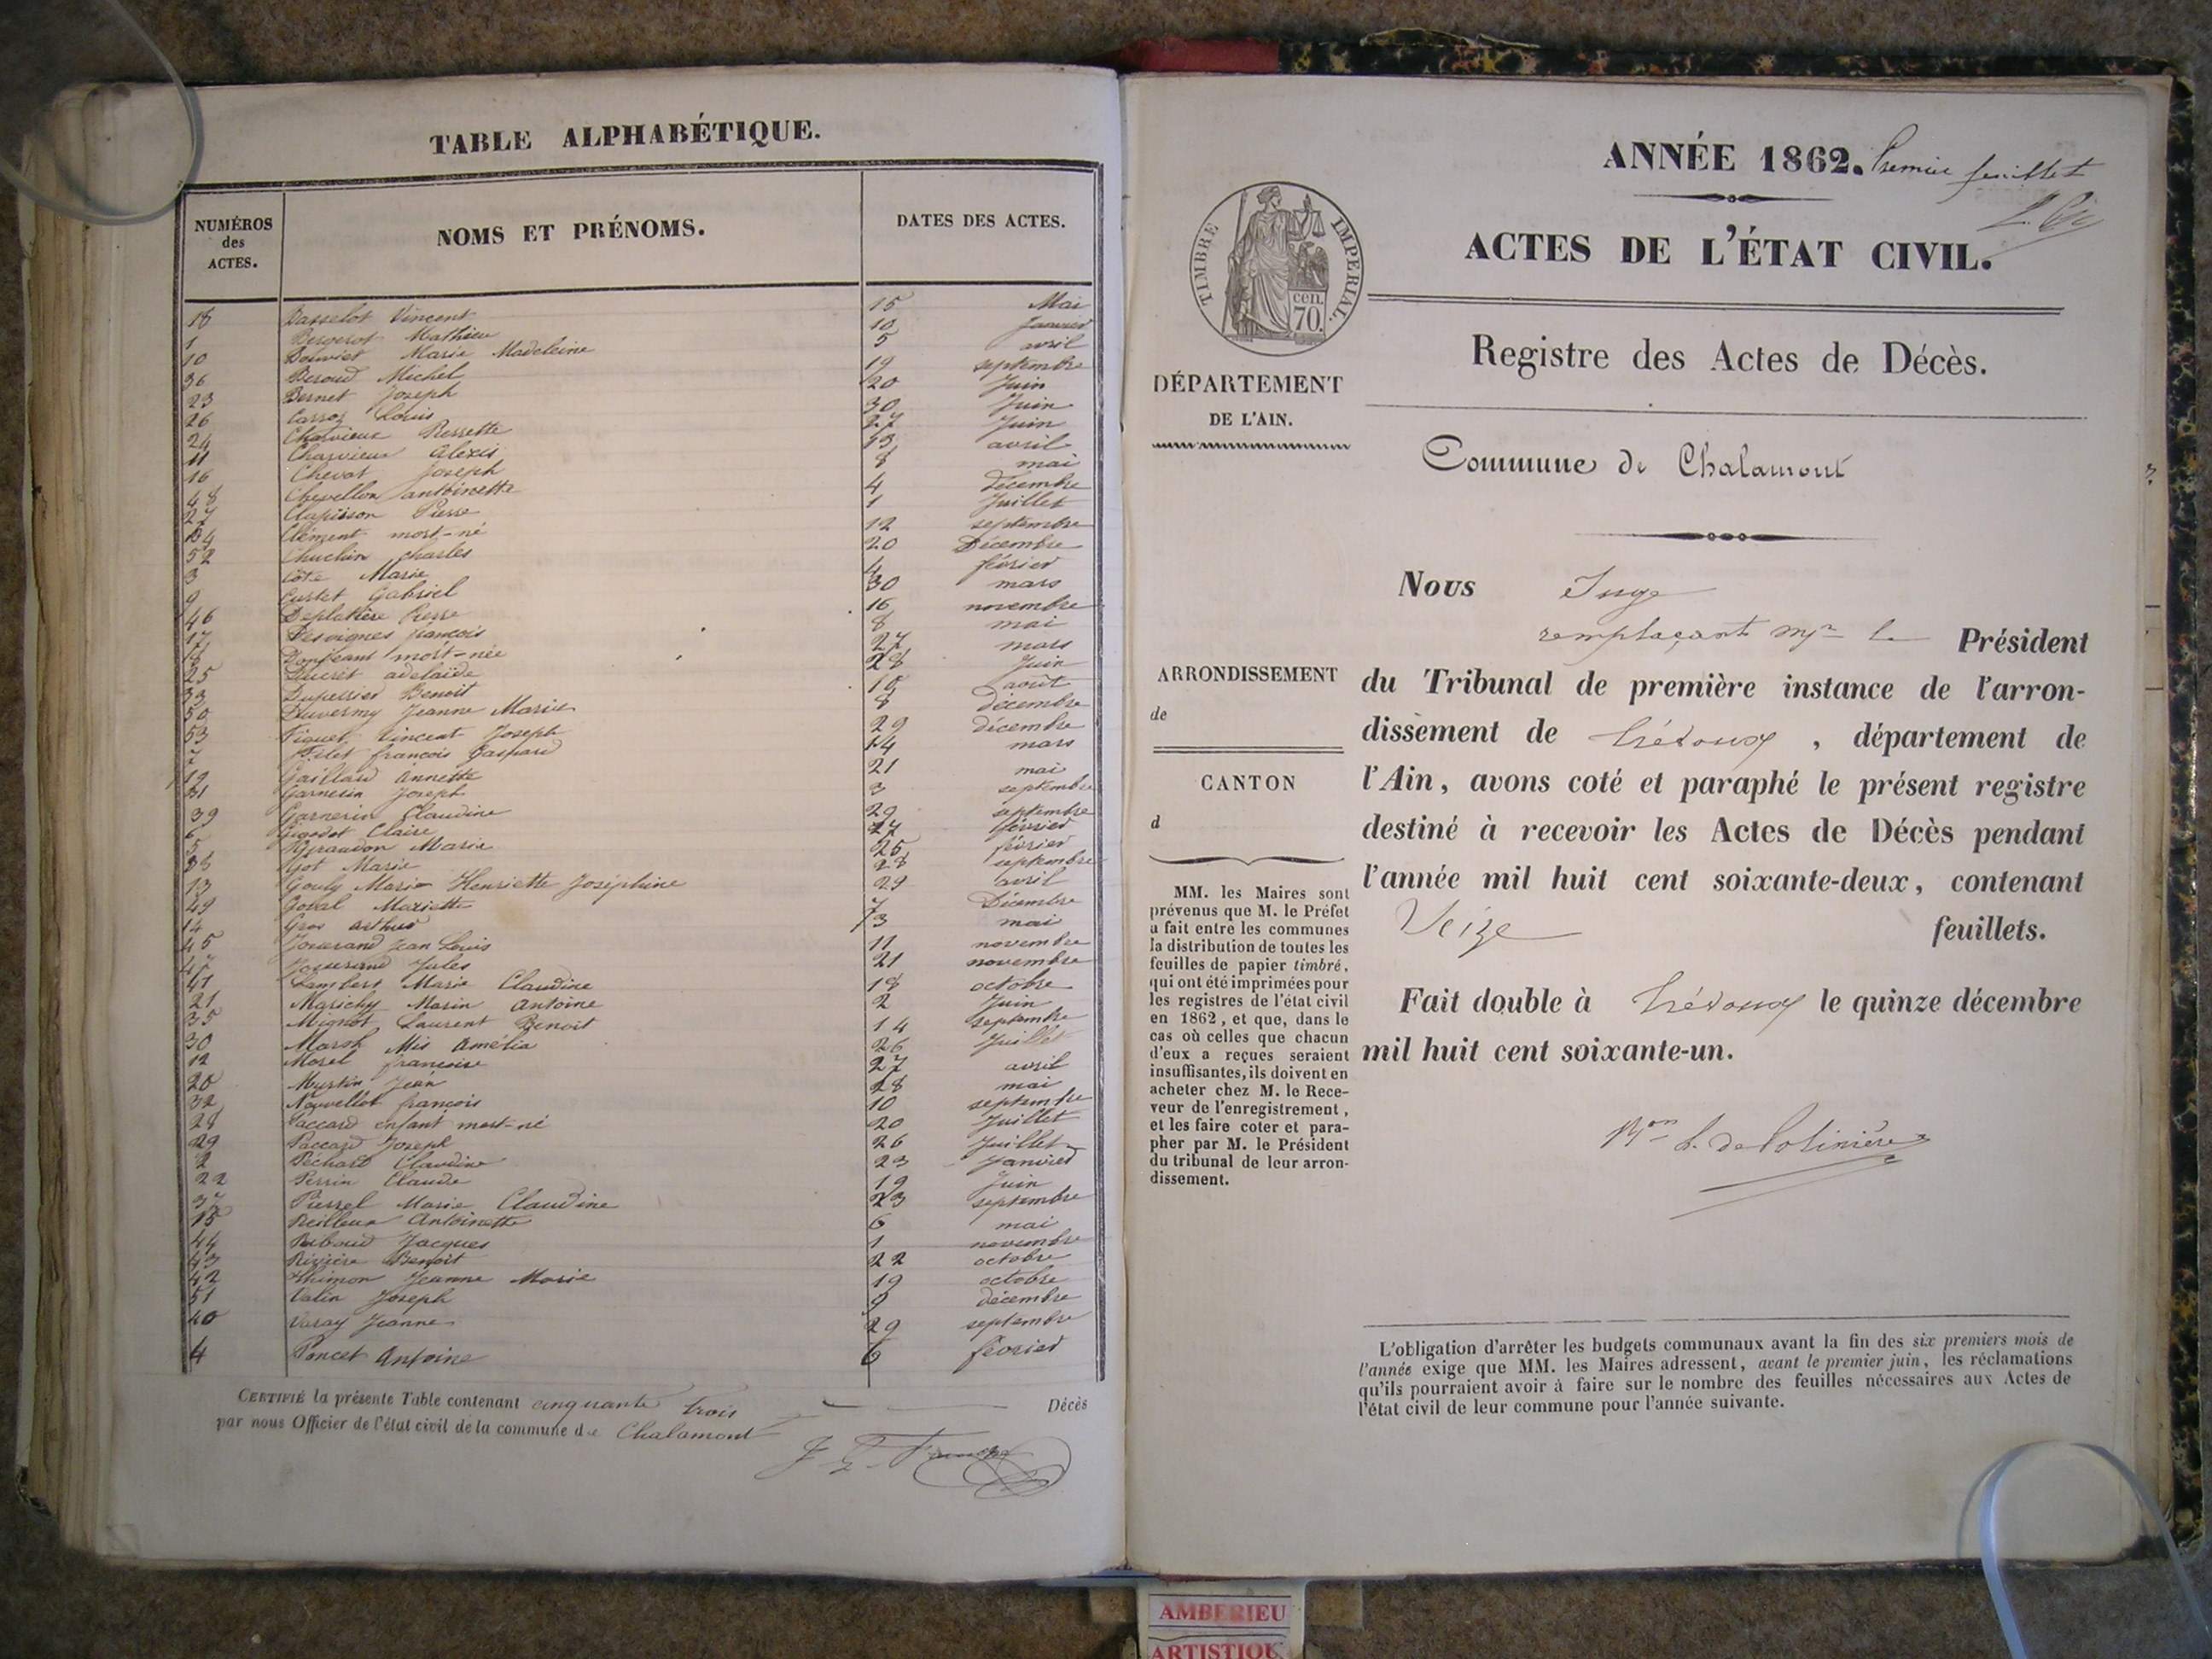 TABLE ALPHABÉTIQUE.
NUMÉROS des ACTES. NOMS ET PRÉNOMS. DATES DES ACTES.
18 Basselot Vincent 15 Mai
1 Bergerot Mathieu 10 Janvier
10 Bouvier Marie Madeleine 5 avril
36 Beroud Michel 19 septembre
23 Bernet Joseph 20 Juin
26 Carroz Louis 30 Juin
24 Charvieux Pierrette 27 Juin
11 Charvieux Alexis 13 avril
16 Chevat Joseph 8 mai
48 Chevellon antoinette 4 décembre
27 Clapisson Pierre 1 Juillet
34 Clément mort-né 12 septembre
52 Chuchin charles 20 Décembre
3 Côte Marie 4 février
9 Curtet Gabriel 30 mars
46 Deplatière Pierre 16 novembre
17 Desvignes françois 8 mai
8 mort-née 27 mars
25 Ducret adelaïde 28 Juin
33 Duperrier Benoit 18 août
50 Duvermy Jeanne Marie 8 décembre
53 Figuet Vincent Joseph 29 décembre
7 Filet françois Gaspard 14 mars
19 Gaillard annette 21 mai
31 Garnerin Joseph 3 septembre
39 Garnerin Claudine 29 septembre
6 Gigodot Claire 27 février
5 Giraudon Marie 25 février
38 Got Marie 28 septembre
13 Gouly Marie Henriette Joséphine 29 avril
49 Goval Mariette 7 Décembre
14 Gros arthur 3 mai
45 Josserand Jean Louis 11 novembre
47 Josserand Jules 21 novembre
41 Lambert Marie Claudine 18 octobre
21 Marichy Marin Antoine 2 Juin
35 Mignot Laurent Benoit 14 septembre
30 Marsh Mis Amélia 26 Juillet
12 Morel françoise 27 avril
20 Myrtin Jean 28 mai
32 Nouvellet françois 10 septembre
28 Paccard enfant mort-né 20 Juillet
29 Paccard Joseph 26 Juillet
2 Péchard Claudine 23 Janvier
22 Perrin Claude 19 Juin
37 Pierrel Marie Claudine 23 septembre
15 Reilleux Antoinette 6 mai
44 Riboud Jacques 1 novembre
43 Rivière Benoit 22 octobre
42 Thimon Jeanne Marie 19 octobre
51 Valin Joseph 9 décembre
40 Varay Jeanne 29 septembre
4 Poncet Antoine 6 février
CERTIFIÉ la présente Table contenant cinquante trois Décès
par nous Officier de l'état civil de la commune de Chalamont
ANNÉE 1862. Premier feuillet
ACTES DE L'ÉTAT CIVIL.
TIMBRE IMPÉRIAL.
cen.
70.
Registre des Actes de Décès.
DÉPARTEMENT
DE L'AIN.
Commune de Chalamont
Nous Juge
remplaçant Mr le Président
du Tribunal de première instance de l'arron-
dissement de Trévoux, département de
l'Ain, avons coté et paraphé le présent registre
destiné à recevoir les Actes de Décès pendant
l'année mil huit cent soixante-deux, contenant
Seize feuillets.
Fait double à Trévoux le quinze décembre
mil huit cent soixante-un.
ARRONDISSEMENT
de
CANTON
d
MM. les Maires sont
prévenus que M. le Préfet
a fait entre les communes
la distribution de toutes les
feuilles de papier timbré,
qui ont été imprimées pour
les registres de l'état civil
en 1862, et que, dans le
cas où celles que chacun
d'eux a reçues seraient
insuffisantes, ils doivent en
acheter chez M. le Rece-
veur de l'enregistrement,
et les faire coter et para-
pher par M. le Président
du tribunal de leur arron-
dissement.
L'obligation d'arrêter les budgets communaux avant la fin des six premiers mois de
l'année exige que MM. les Maires adressent, avant le premier juin, les réclamations
qu'ils pourraient avoir à faire sur le nombre des feuilles nécessaires aux Actes de
l'état civil de leur commune pour l'année suivante.
AMBERIEU
ARTISTIQU